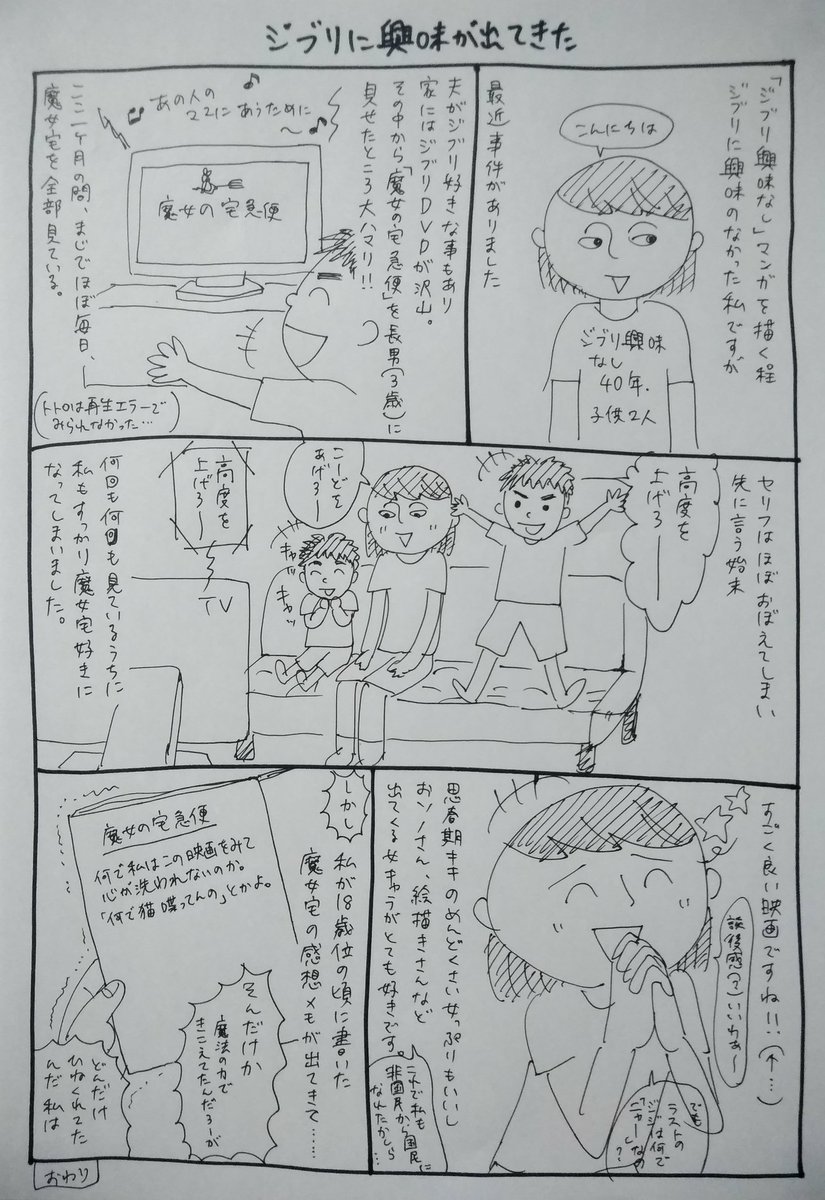 ジブリに興味が出てきた
「ジブリ興味なし」マンガを描く程
ジブリに興味のなかった私ですが
最近事件がありました
こんにちは
ジブリ興味
なし
40年.
子供2人
夫がジブリ好きな事もあり
家にはジブリDVDが沢山。
その中から「魔女の宅急便」を長男(3歳)に
見せたところ大ハマリ!!
あの人の
ママにあうために
〜♪
魔女の宅急便
ここ一ヶ月の間、まじでほぼ毎日、
魔女宅を全部見ている。
(トトロは再生エラーで
みられなかった…)
セリフはほぼおぼえてしまい
先に言う始末
高度を
上げろー
こーどを
あげろー
キャッ
キャッ
高度を
上げろー
TV
何回も何回も見ているうちに
私もすっかり魔女宅好きに
なってしまいました。
すごく良い映画ですね!!(今…)
読後感(?)いいわぁ〜
でも
ラストの
ジジは何で
「ニャー」なの
?
思春期キキのめんどくさい女っぷりもいいし
おソノさん、絵描きさんなど
出てくる女キャラがとても好きです。
これで私も
非国民から国民に
なれたかしら…
しかし
私が18歳位の頃に書いた
魔女宅の感想メモが出てきて……
魔女の宅急便
何で私はこの映画をみて
心が洗われないのか。
「何で猫喋ってんの」とかよ。
そんだけか
魔法の力で
きこえてたんだろーが
どんだけ
ひねくれてた
んだ私は
おわり